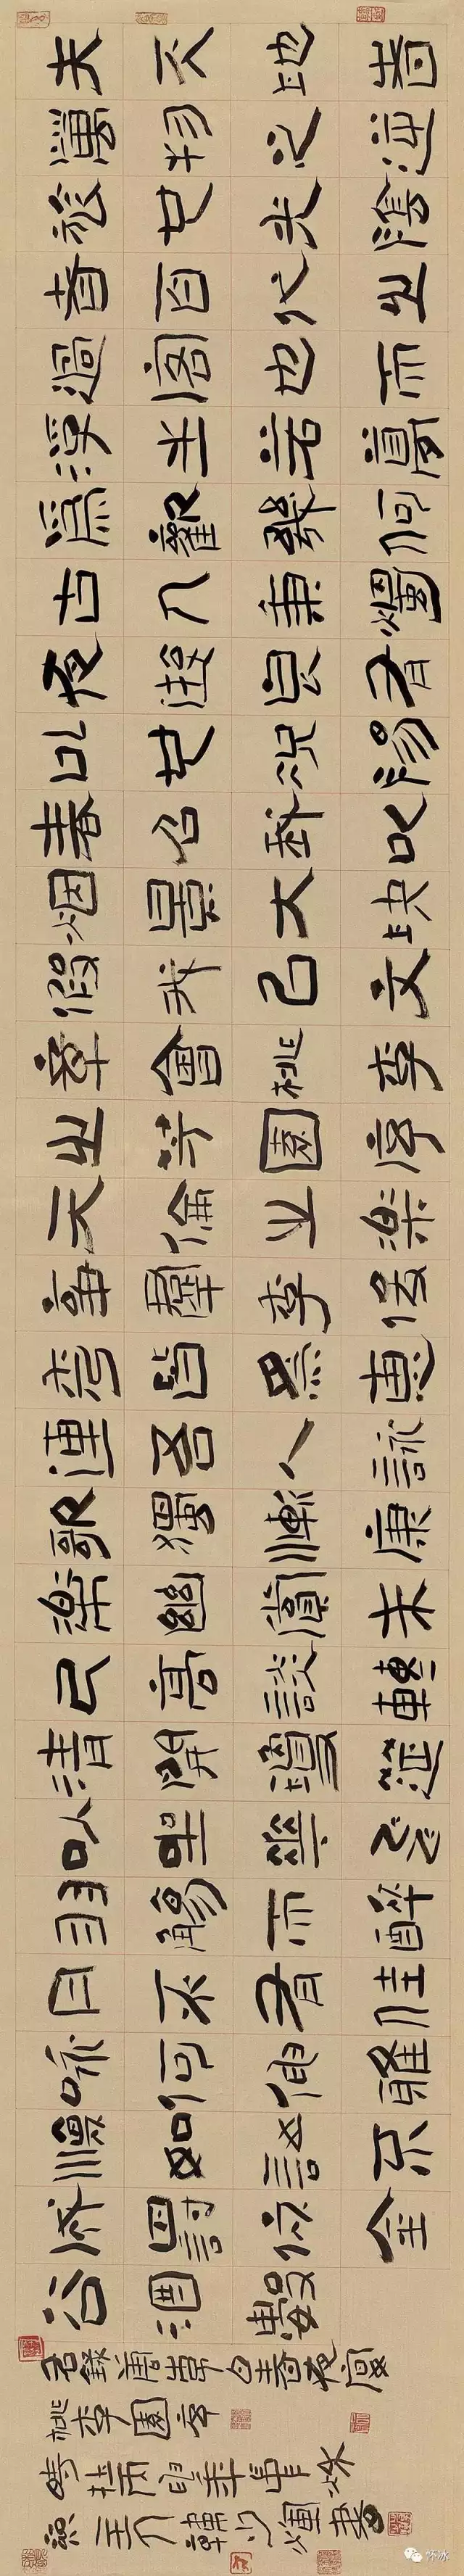 夫天地者
萬物之逆
旅也光陰
者百代之
過客也而
浮生若夢
為歡幾何
古人秉燭
夜遊良有
以也況陽
春召我以
煙景大塊
假我以文
章會桃李
之芳園序
天倫之樂
事群季俊
秀皆為惠
連吾人詠
歌獨慚康
樂幽賞未
已高談轉
清開瓊筵
以坐花飛
羽觴而醉
月不有佳
詠何伸雅
懷如詩不
成罰依金
谷酒數
右錄唐李白春夜宴
桃李園序
時在丙申年
主人韓少輝書
怀冰